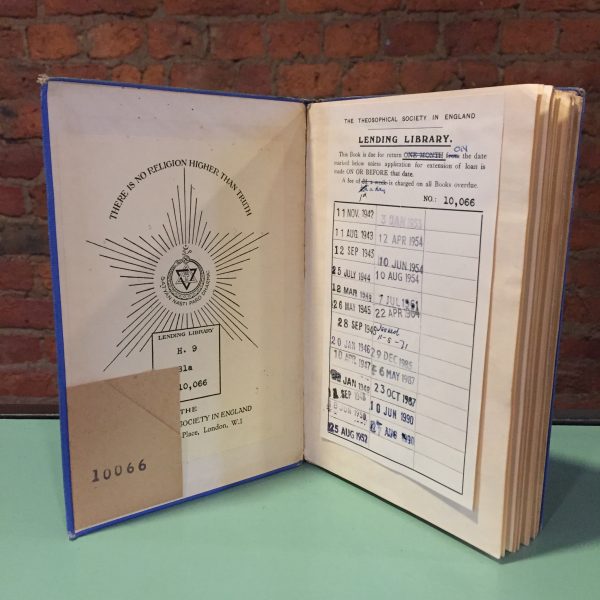 THERE IS NO RELIGION HIGHER THAN TRUTH
LENDING LIBRARY
H. 9
Bla
10,066
THE
SOCIETY IN ENGLAND
Place, London, W.1
10066
THE THEOSOPHICAL SOCIETY IN ENGLAND
LENDING LIBRARY.
This Book is due for return ONE MONTH from ON the date
marked below unless application for extension of loan is
made ON OR BEFORE that date.
A fee of is charged on all Books overdue.
NO.: 10,066
11 NOV. 1942 3 JAN 1953
11 AUG. 1943 12 APR 1954
12 SEP 1943 10 JUN 1954
25 JULY 1944 10 AUG 1954
12 MAR 7 JUL
26 MAY 1945 22 APR
28 SEP Issued
11-5-71
20 JAN 1946 29 DEC 1986
10 APR 1947 6 MAY 1987
JAN 23 OCT 1987
SEP 10 JUN 1990
JUN AUG 1990
25 AUG 1952